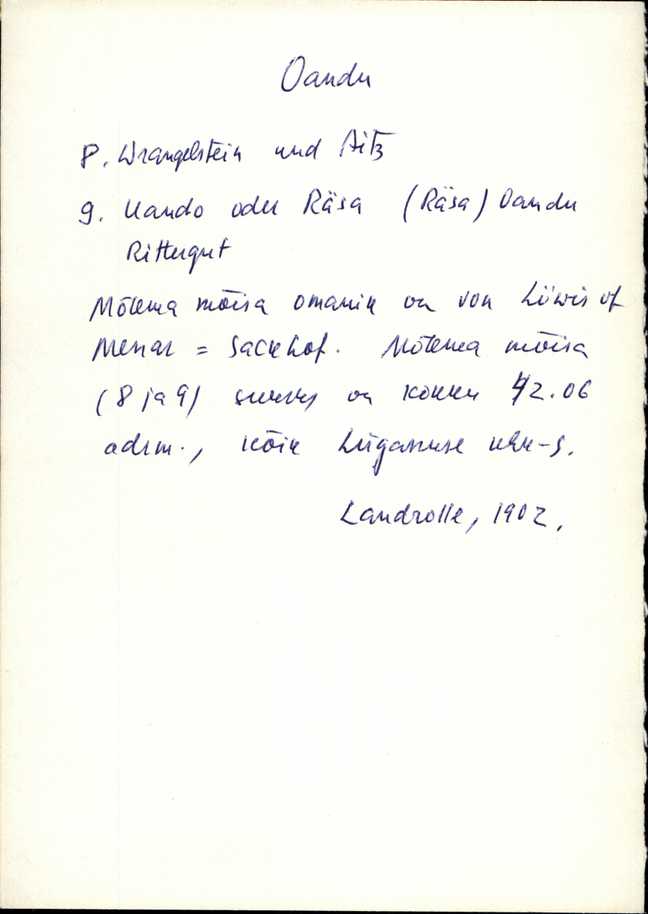 Oandu
8. Wrangelstein und Aitz
9. Uando oder Räsa (Räsa) Oandu
Rittergut
Mõlema mõisa omanik on von Löwis of
Menar = Sackhof. Mõlema mõisa
(8 ja 9) suurus on kokku 42.06
adrm., kõik Lüganuse khk-s.
Landrolle, 1902.